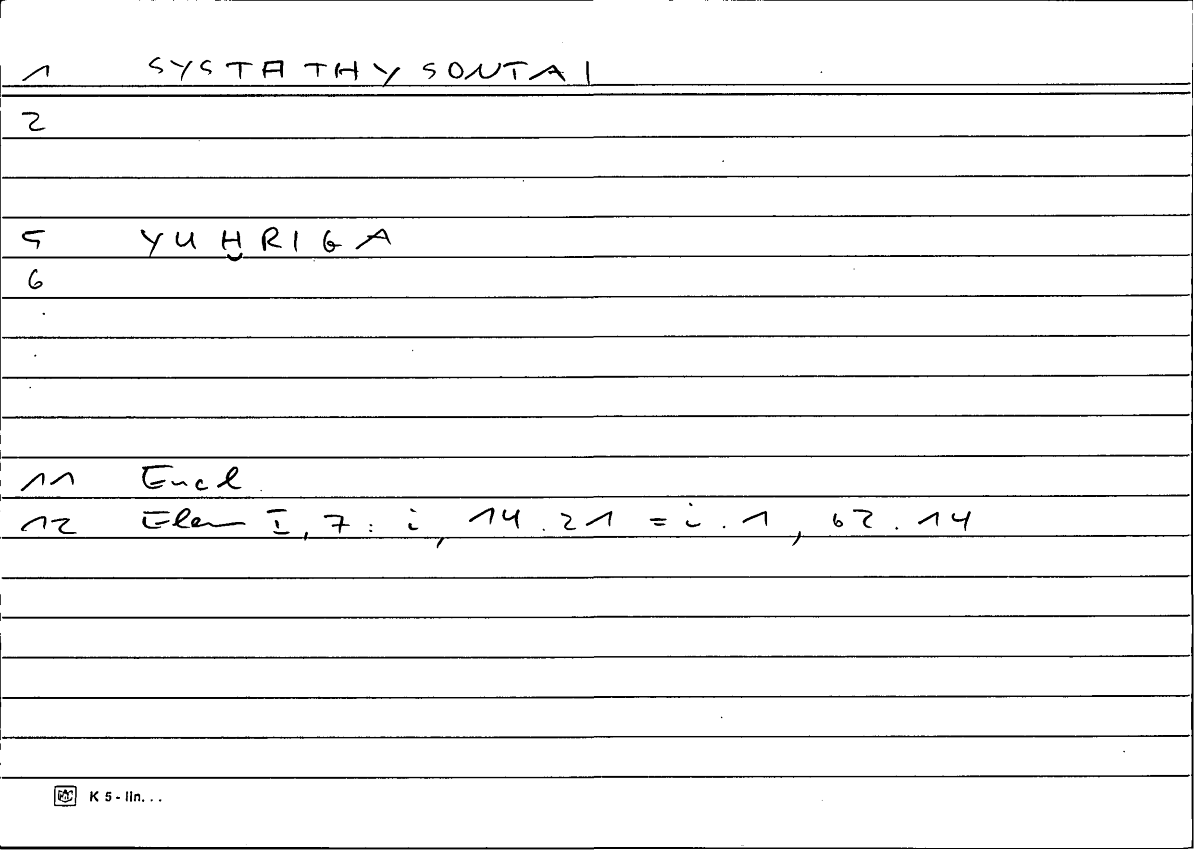 1 SYSTATHYSONTAI
2
5 YUḪRIGA
6
11 Eucl
12 Elem I, 7 : i, 14.21 = i.1, 62.14
K 5 - lin. . .